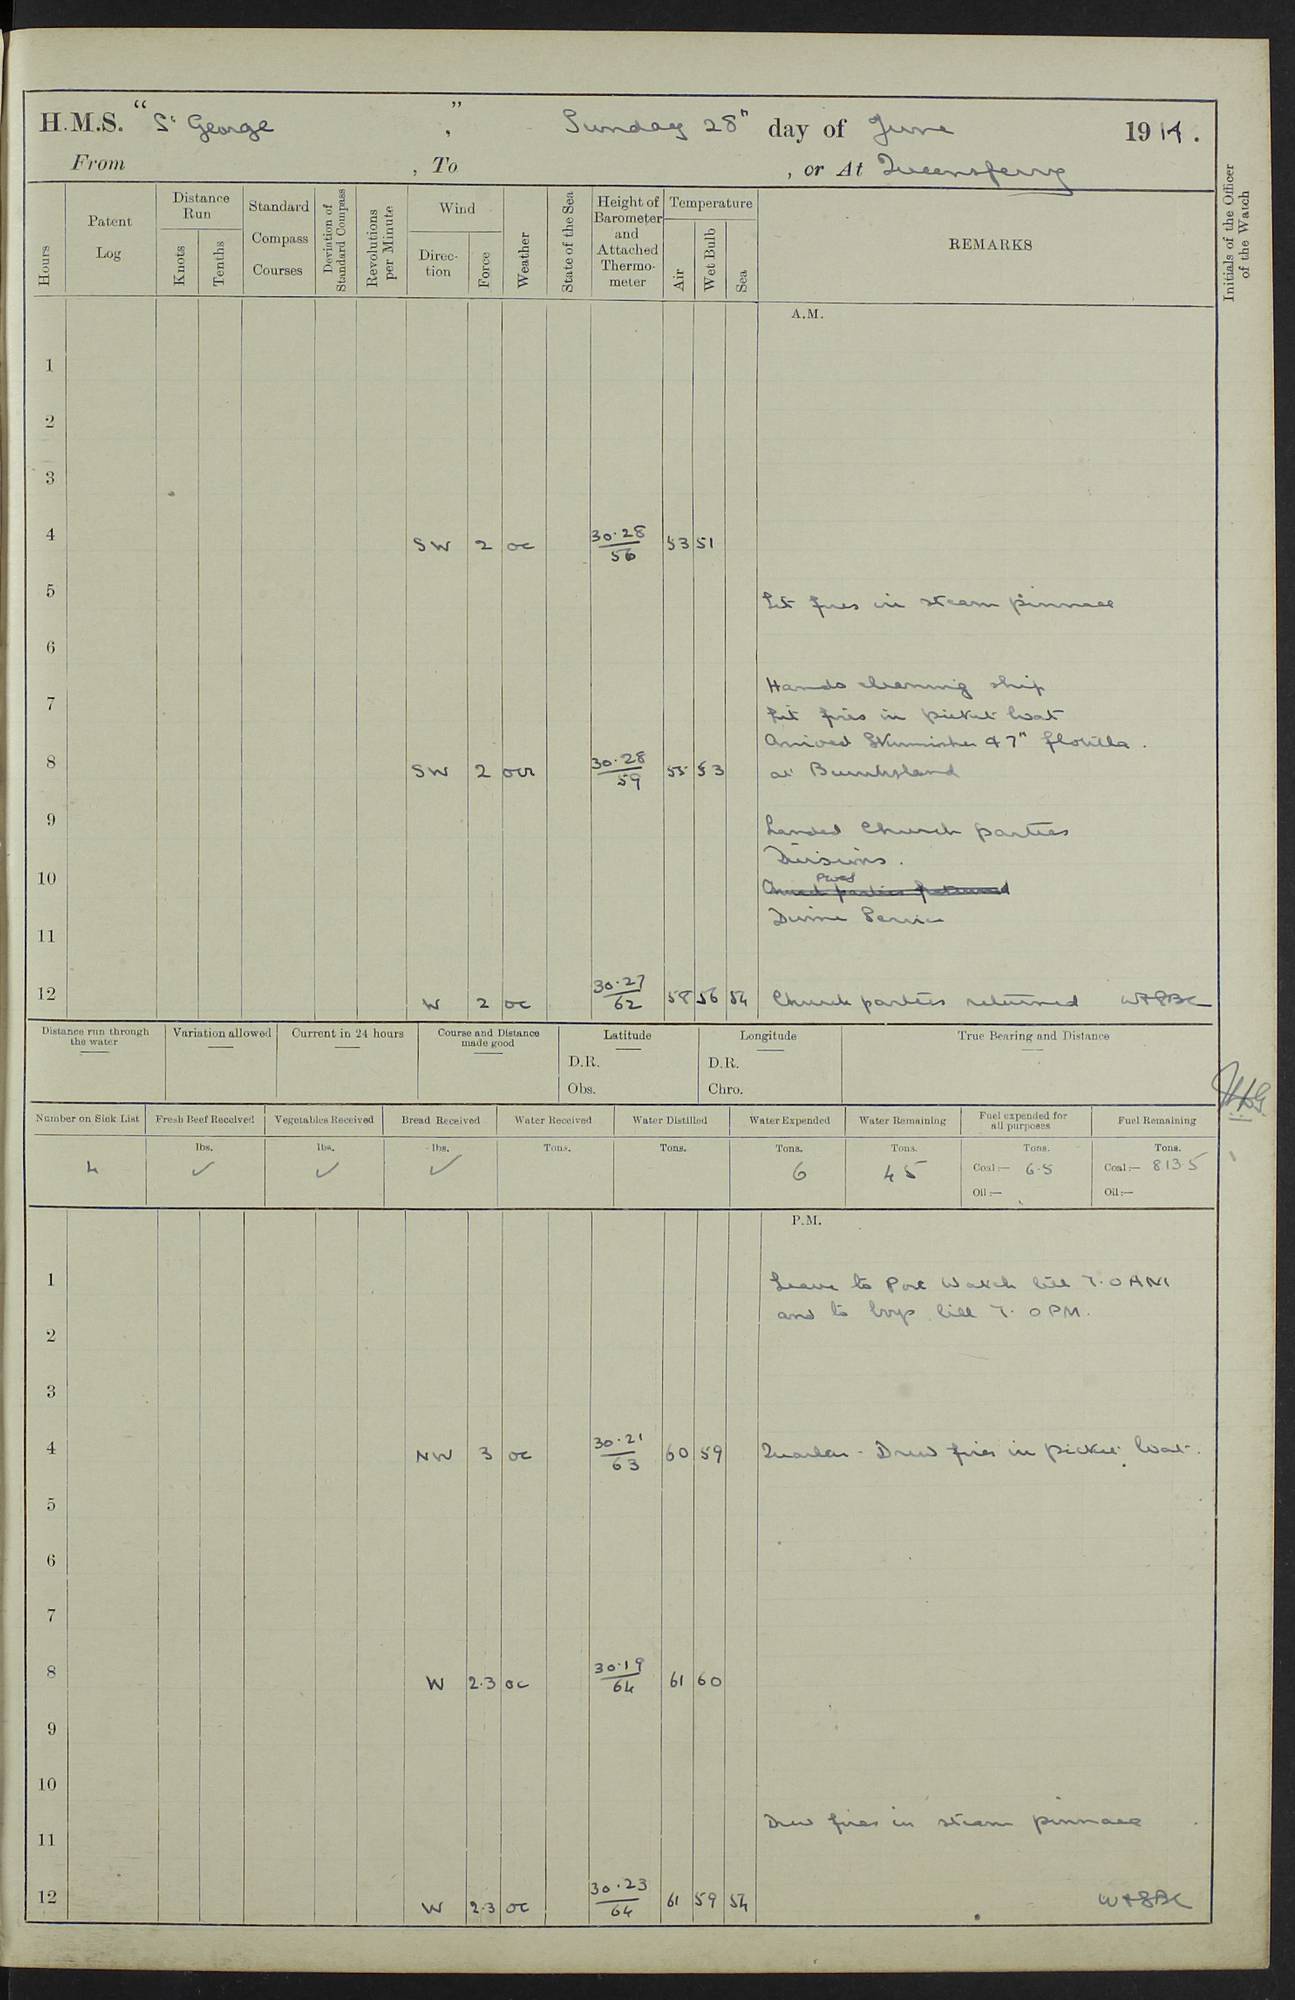 H.M.S. "St George", Sunday 28th day of June 1914.
From , To , or At Queensferry
Hours
Patent Log
Distance Run
Knots
Tenths
Standard Compass Courses
Deviation of Standard Compass
Revolutions per Minute
Wind
Direction
Force
Weather
State of the Sea
Height of Barometer and Attached Thermometer
Temperature
Air
Wet Bulb
Sea
REMARKS
Initials of the Officer of the Watch
A.M.
1
2
3
4 SW 2 oc 30.28 56 53 51
5 Lit fires in steam pinnace
6
Hands cleaning ship
7 Lit fires in picket boat
Arrived Skirmisher & 7th flotilla.
8 SW 2 ocr 30.28 59 55 53 at Burntisland
9 Landed Church parties
Divisions.
10 Church parties returned
Divine Service
11
12 W 2 oc 30.27 62 58 56 54 Church parties returned
Distance run through the water
Variation allowed
Current in 24 hours
Course and Distance made good
Latitude
D.R.
Obs.
Longitude
D.R.
Chro.
True Bearing and Distance
Number on Sick List
Fresh Beef Received
Vegetables Received
Bread Received
Water Received
Water Distilled
Water Expended
Water Remaining
Fuel expended for all purposes
Fuel Remaining
4
lbs. ✓
lbs. ✓
lbs. ✓
Tons.
Tons.
Tons. 6
Tons. 45
Tons. Coal:— 6.5
Oil:—
Tons. Coal:— 813.5
Oil:—
P.M.
1 Leave to Port Watch till 7.0 AM
and to boys till 7.0 PM.
2
3
4 NW 3 oc 30.21 63 60 59 Quarters - Drew fires in picket boat.
5
6
7
8 W 2.3 oc 30.19 64 61 60
9
10
Drew fires in steam pinnace
11
12 W 2.3 oc 30.23 64 61 59 54